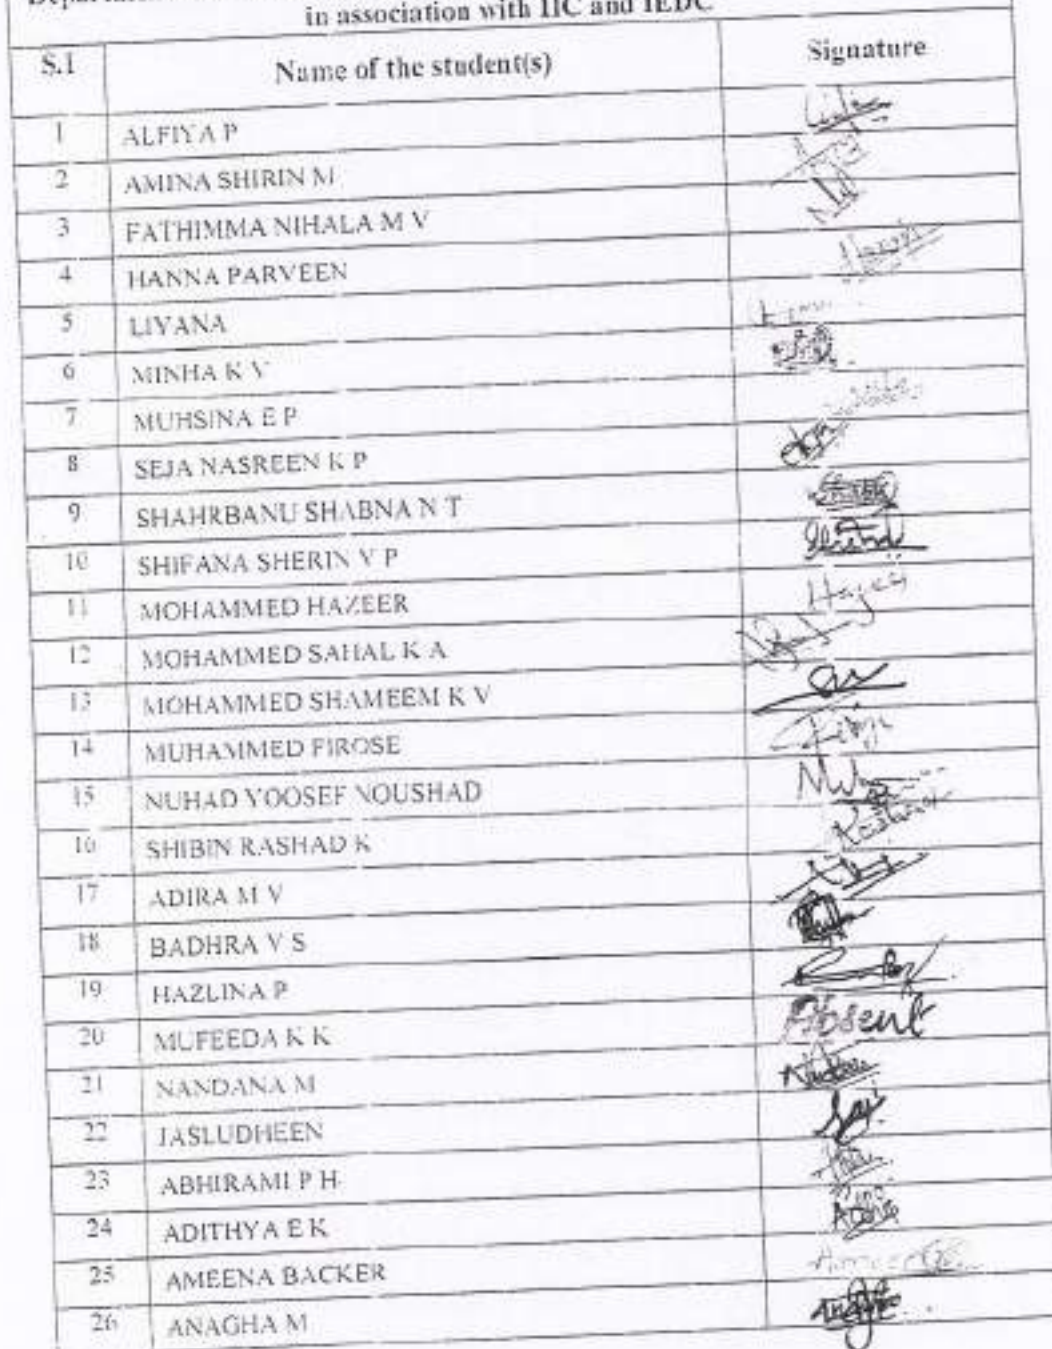 in association with IIC and IEDC
S.1 Name of the student(s) Signature
1 ALFIYA P
2 AMINA SHIRIN M
3 FATHIMMA NIHALA M V
4 HANNA PARVEEN
5 LIYANA
6 MINHA K V
7 MUHSINA E P
8 SEJA NASREEN K P
9 SHAHRBANU SHABNA N T
10 SHIFANA SHERIN V P
11 MOHAMMED HAZEER
12 MOHAMMED SAHAL K A
13 MOHAMMED SHAMEEM K V
14 MUHAMMED FIROSE
15 NUHAD YOOSEF NOUSHAD
16 SHIBIN RASHAD K
17 ADIRA M V
18 BADHRA V S
19 HAZLINA P
20 MUFEEDA K K Absent
21 NANDANA M
22 JASLUDHEEN
23 ABHIRAMI P H
24 ADITHYA E K
25 AMEENA BACKER
26 ANAGHA M